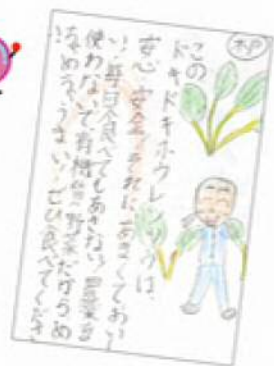 この
ドキドキホウレンソウは、
安心、安全、それに、あまくておいし
い！毎日食べてもあきない！農薬を
使わないで、有機質の野菜だからめ
ちゃめちゃうまい！ぜひ食べてくださ